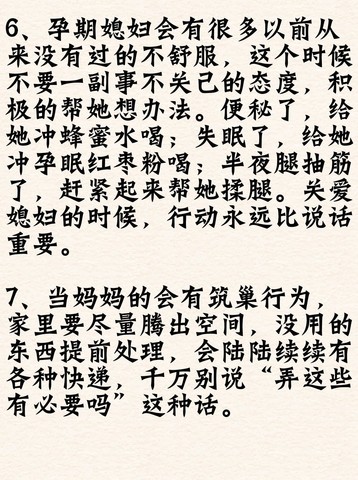 6、孕期媳妇会有很多以前从
来没有过的不舒服，这个时候
不要一副事不关己的态度，积
极的帮她想办法。便秘了，给
她冲蜂蜜水喝；失眠了，给她
冲孕眠红枣粉喝；半夜腿抽筋
了，赶紧起来帮她揉腿。关爱
媳妇的时候，行动永远比说话
重要。
7、当妈妈的会有筑巢行为，
家里要尽量腾出空间，没用的
东西提前处理，会陆陆续续有
各种快递，千万别说“弄这些
有必要吗”这种话。